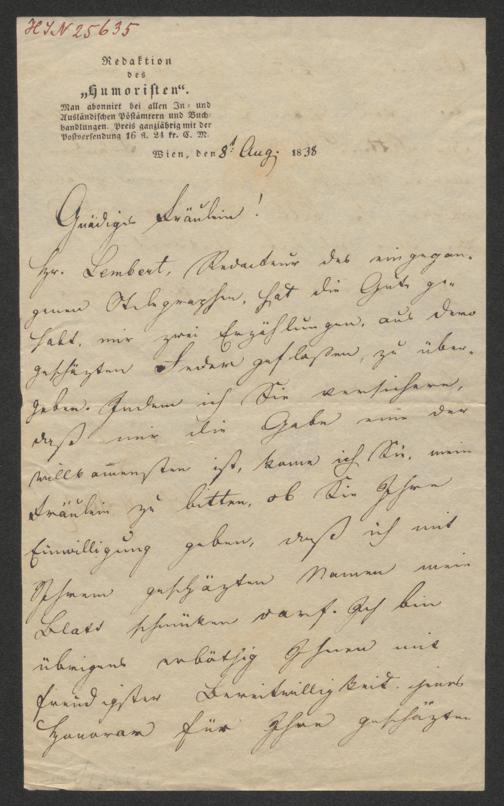 HIN 25635
Redaktion
des
„Humoristen“.
Man abonnirt bei allen In- und
Ausländischen Postämtern und Buch-
handlungen. Preis ganzjährig mit der
Postversendung 16 fl. 24 kr. C. M.
Wien, den 8t Aug. 1838
Gnädiges Fräulein!
Hr. Lembert, Redacteur des eingegan-
genen Telegraphen, hat die Güte ge-
habt, mir zwei Erzählungen, aus dero
geschäzten Feder geflossen, zu über-
geben. Indem ich Sie versichere,
daß mir die Gabe eine der
willkommensten ist, komme ich Sie, mein
Fräulein zu bitten, ob Sie Ihre
Einwilligung geben, daß ich mit
Ihrem geschäzten Namen mein
Blatt schmüken darf. Ich bin
übrigens erböthig Ihnen mit
freudigster Bereitwilligkeit jenes
Honorar für Ihre geschäzten